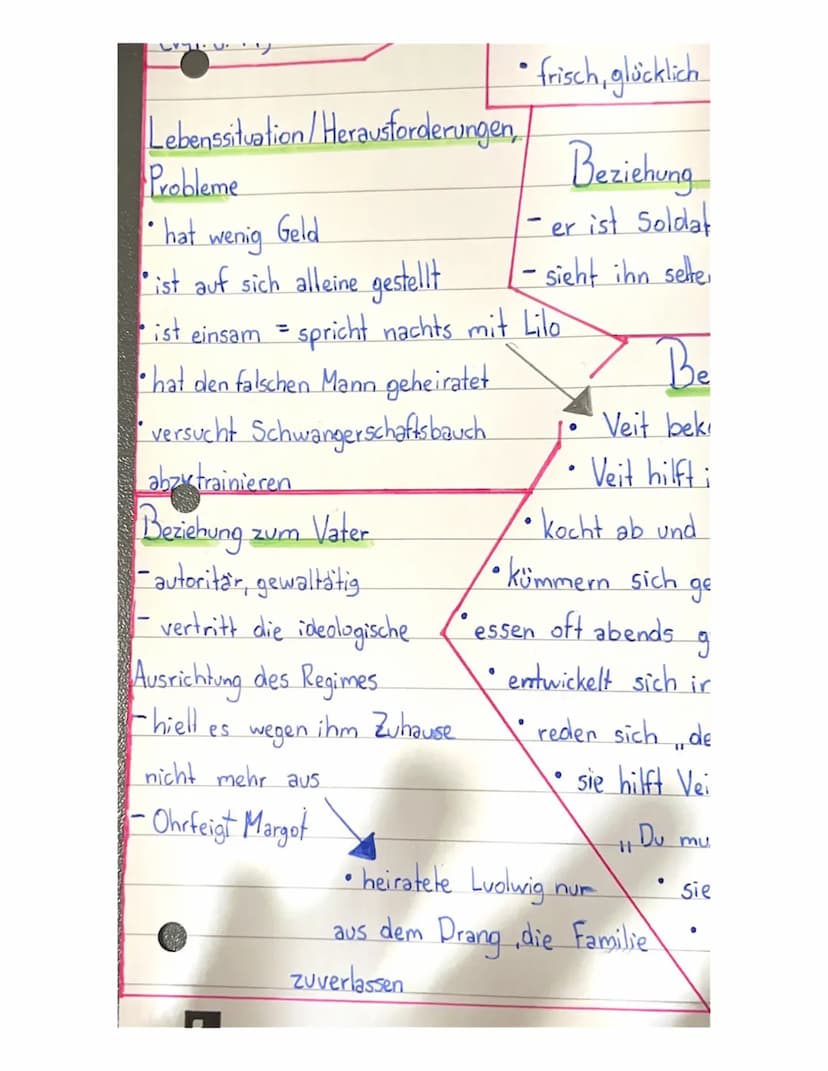 • frisch, glücklich
Lebenssituation/Herausforderungen,
Probleme
• hat wenig Geld
• ist auf sich alleine gestellt
• ist einsam = spricht nachts mit Lilo
• hat den falschen Mann geheiratet
• versucht Schwangerschaftsbauch
abzutrainieren
Beziehung
- er ist Soldat
- sieht ihn
Beziehung zum Vater
- autoritär, gewalttätig
- vertritt die ideologische
Ausrichtung des Regimes
- hielt es wegen ihm Zuhause
nicht mehr aus
- Ohrfeigt Margot
• heiratete Ludwig nur
aus dem Drang, die Familie
zuverlassen
Be
• Veit bek
• Veit hilft i
• kocht ab und
• kümmern sich ge
• essen oft abends g
• entwickelt sich in
• reden sich „de
• sie hilft Vei
„Du mu
• sie